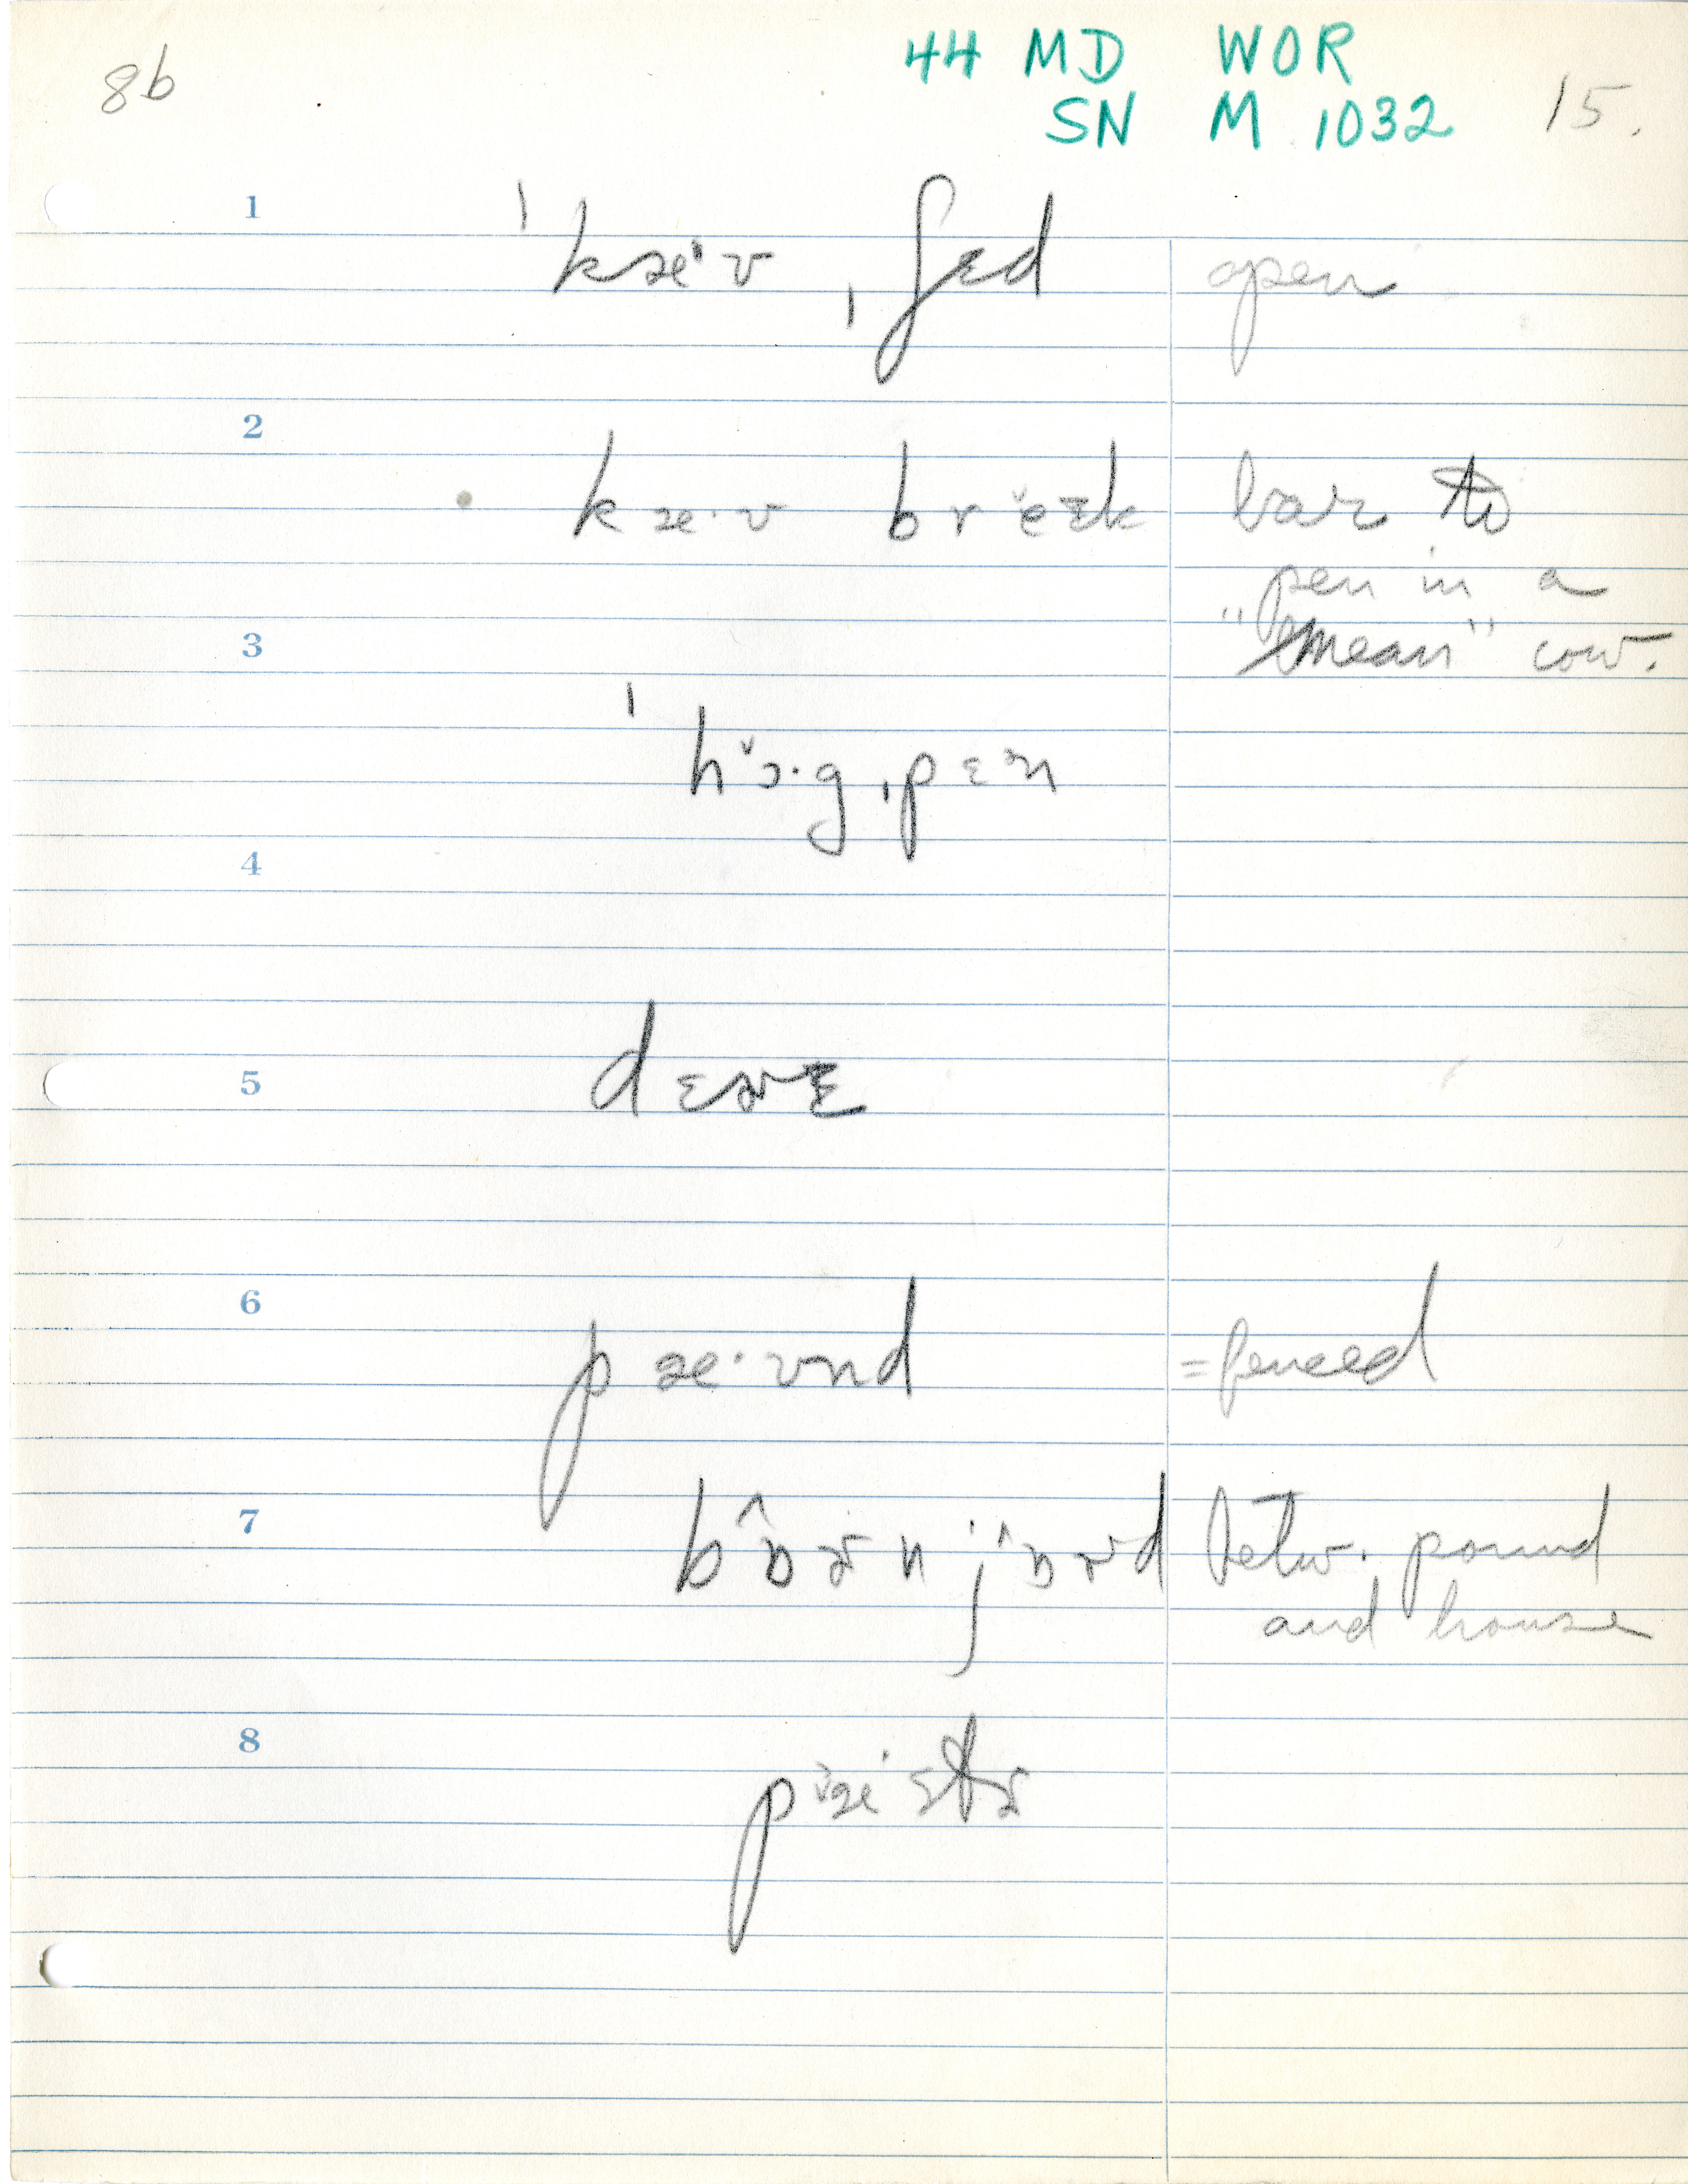 8b
44 MD WOR
SN M 1032
15.
1
ˈkæ·ʊ ˌʃɛd open
2
kæ·ʊ brĕɛk bar to
pen in a
3
"mean" cow.
ˈhɔ̌·g ˌpɛən
4
5
dɛɚɛ
6
pæ·ʊnd =fenced
7
bɒ̂ɚn jɒ̂ɚd betw. pound
and house
8
pæ̌·stɚ